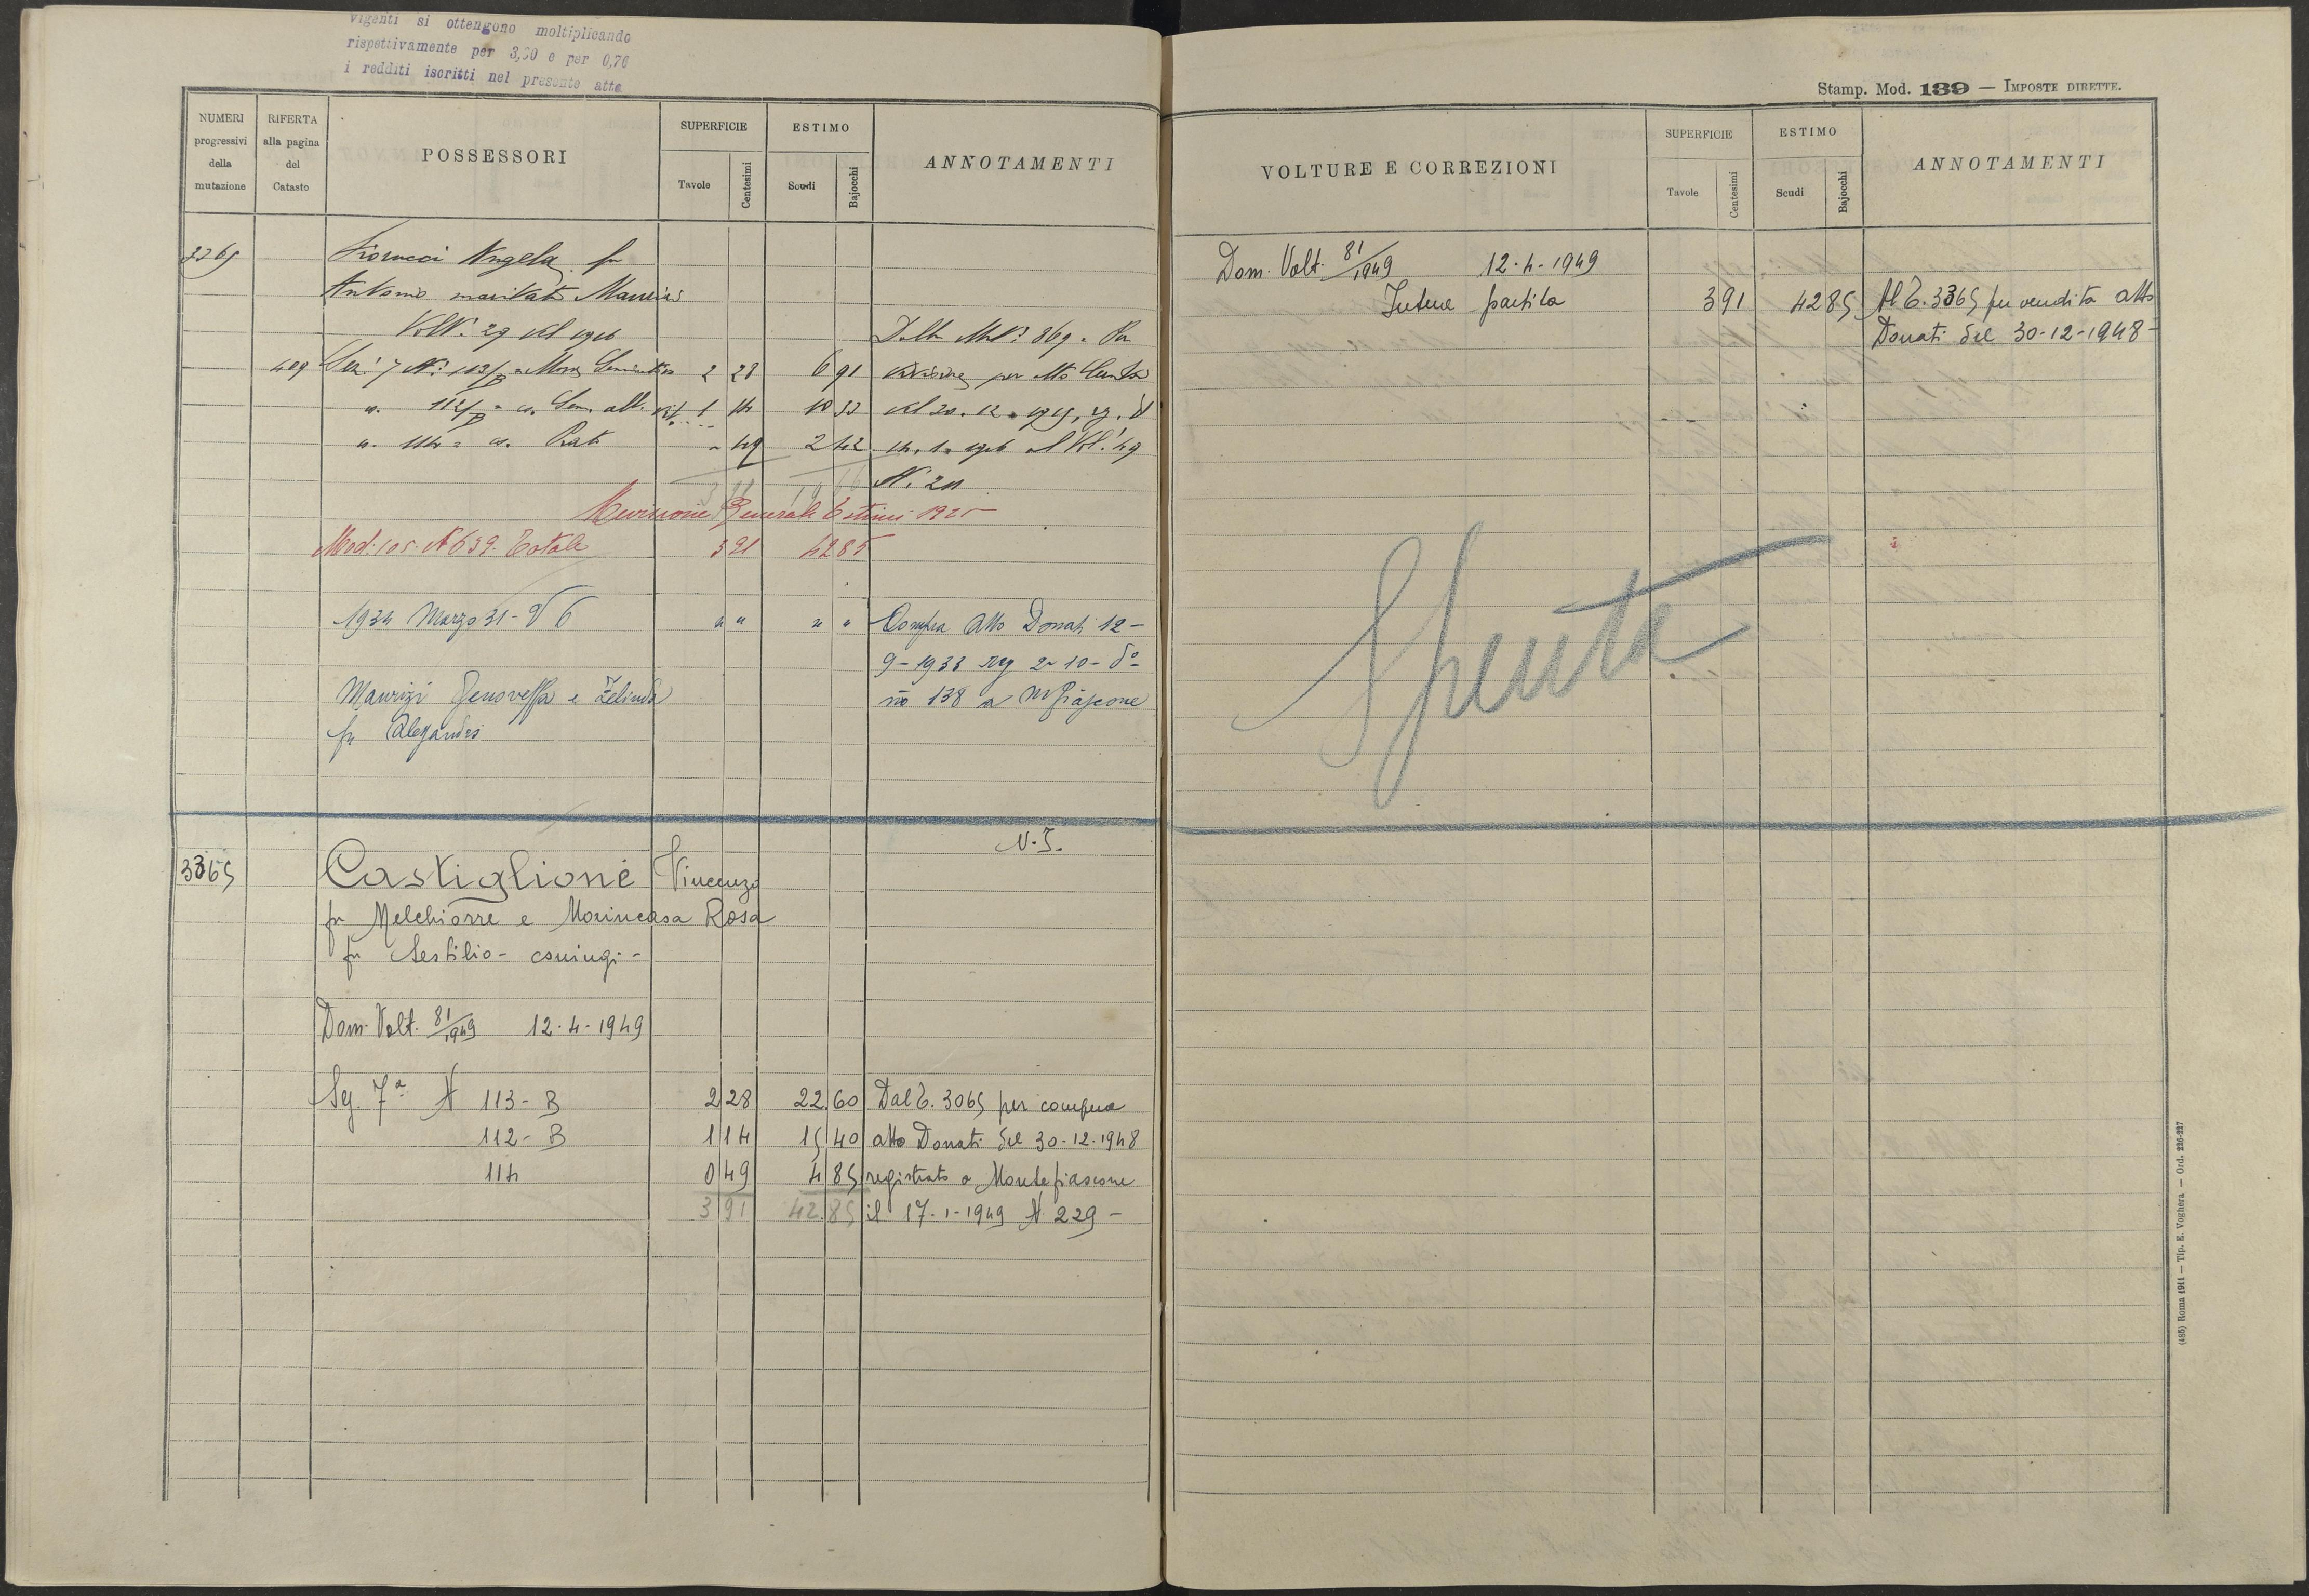 vigenti si ottengono moltiplicando
rispettivamente per 3,30 e per 0,76
i redditi iscritti nel presente atto
NUMERI progressivi della mutazione
RIFERTA alla pagina del Catasto
POSSESSORI
SUPERFICIE
Tavole Centesimi
ESTIMO
Scudi Bajocchi
ANNOTAMENTI
Fiorucci Angela fu
Antonio maritata
Volt. 29 del 1916
409 Sez. 7 2 28 6 91
112/B 1 14 10 33
114 Prato 49 2 42
N. 20
Revisione Generale Estimi 1925
Mod. 105. N 639. Totale 3 91 42 85
1934 Marzo 31 - N 6 " " " " Compra Atto Donati 12 -
9 - 1933 reg 2 - 10 - d°
n° 138 a Mfiascone
Maurizi Genoveffa e Zelinda
fu
N. I.
3365 Castiglione Vincenzo
fu Melchiorre e Morincasa Rosa
fu Sestilio - coniugi -
Dom. Volt. 81/1949 12 - 4 - 1949
Sez. 7a N 113 - B 2 28 22 60 Dal T. 3065 per compra
112 - B 1 14 15 40 atto Donati del 30 - 12 - 1948
114 0 49 4 85 registrato a Montefiascone
3 91 42 85 il 17 - 1 - 1949 N 229 -
Stamp. Mod. 139 — IMPOSTE DIRETTE.
VOLTURE E CORREZIONI
SUPERFICIE
Tavole Centesimi
ESTIMO
Scudi Bajocchi
ANNOTAMENTI
Dom. Volt. 81/1949 12 - 4 - 1949
Intera partita 3 91 42 85 Al T. 3365 per vendita atto
Donati del 30 - 12 - 1948 -
Spenta
(485) Roma 1911 — Tip. E. Voghera — Ord. 226-227